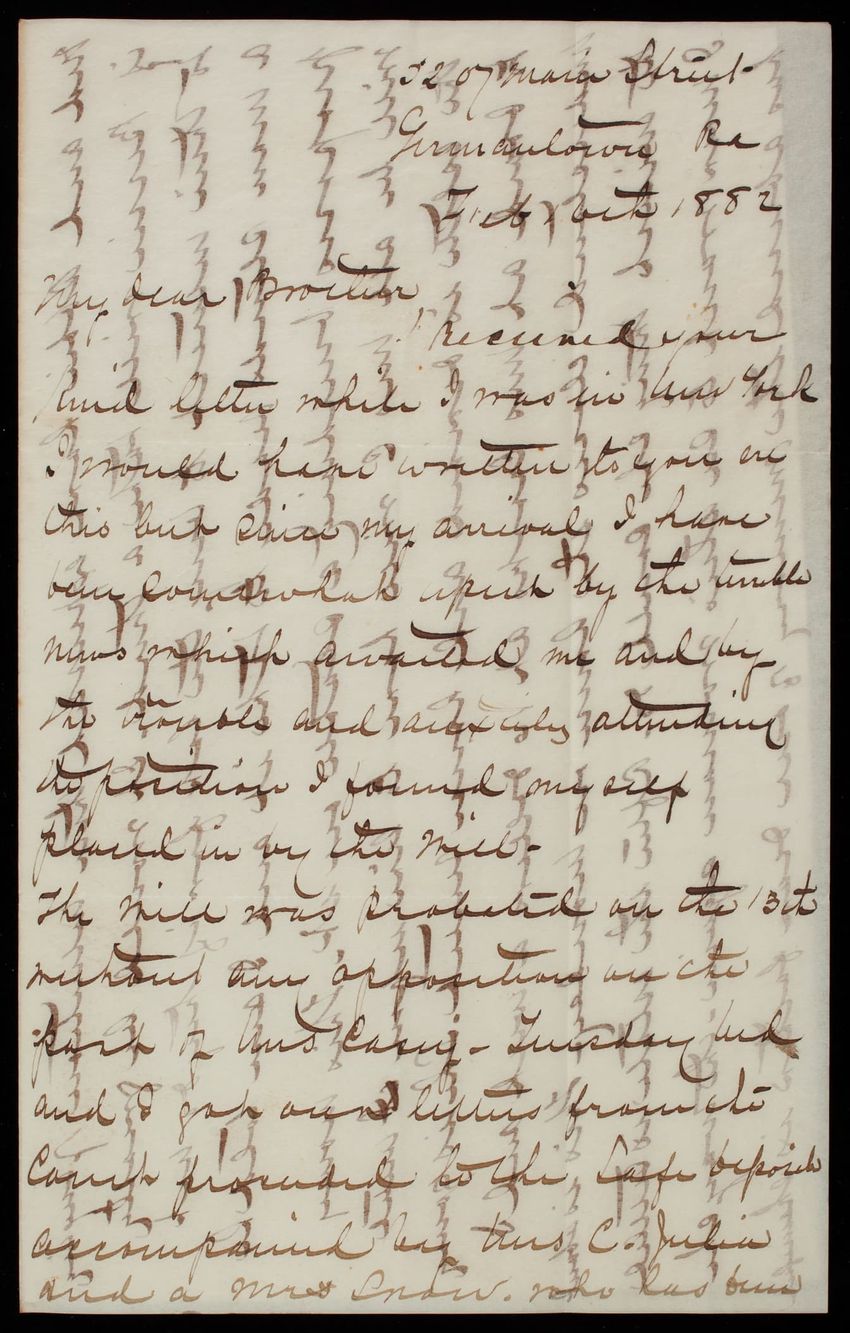 5207 Main Street-
Germantown Pa
Feb 1882
My dear Brother,
I received your
kind letter while I was in New York
I would have written to you ere
this but since my arrival I have
been somewhat upset by the terrible
news which awaited me and by
the trouble and anxiety attending
the position I found myself
placed in by the Will-
The Will was probated on the 13th
without any opposition on the
part of Mrs Casey- Tuesday
and I got our letters from the
Court proceeded to the Safe deposit
accompanied by Mrs C. Julia
and a Mrs Snow. who has been